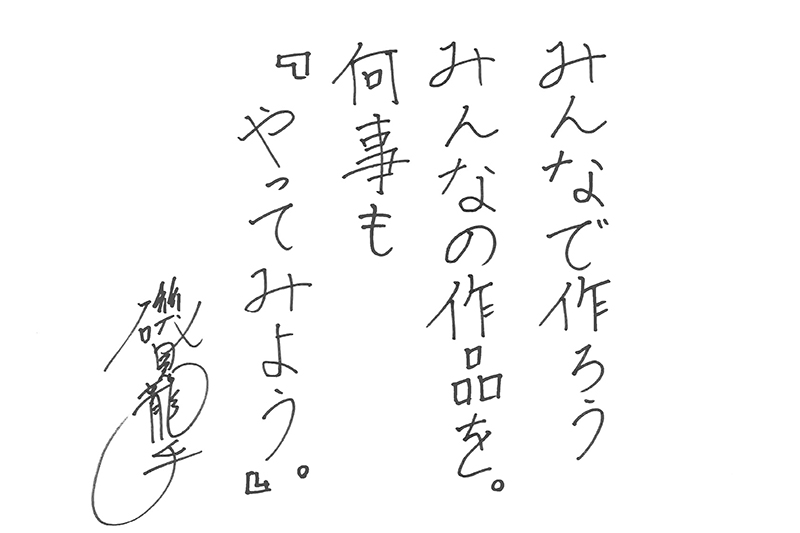 みんなで作ろう
みんなの作品を。
何事も
『やってみよう。』
磯見龍千